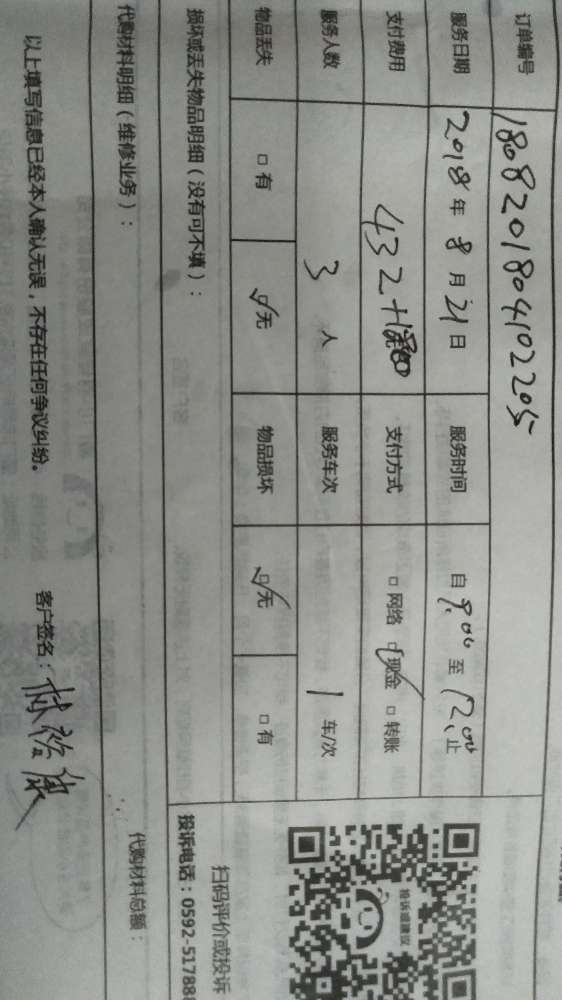 订单编号 1808201804102205
服务日期 2018年8月21日 服务时间 自9:00至12:00止
支付费用 432+ 支付方式 □网络 ☑现金 □转账
服务人数 3人 服务车次 1车/次
物品丢失 □有 ☑无 物品损坏 ☑无 □有
损坏或丢失物品明细（没有可不填）：
投诉或建议
扫码评价或投诉
投诉电话：0592-51788
代购材料明细（维修业务）：
代购材料总额：
以上填写信息已经本人确认无误，不存在任何争议纠纷。 客户签名：